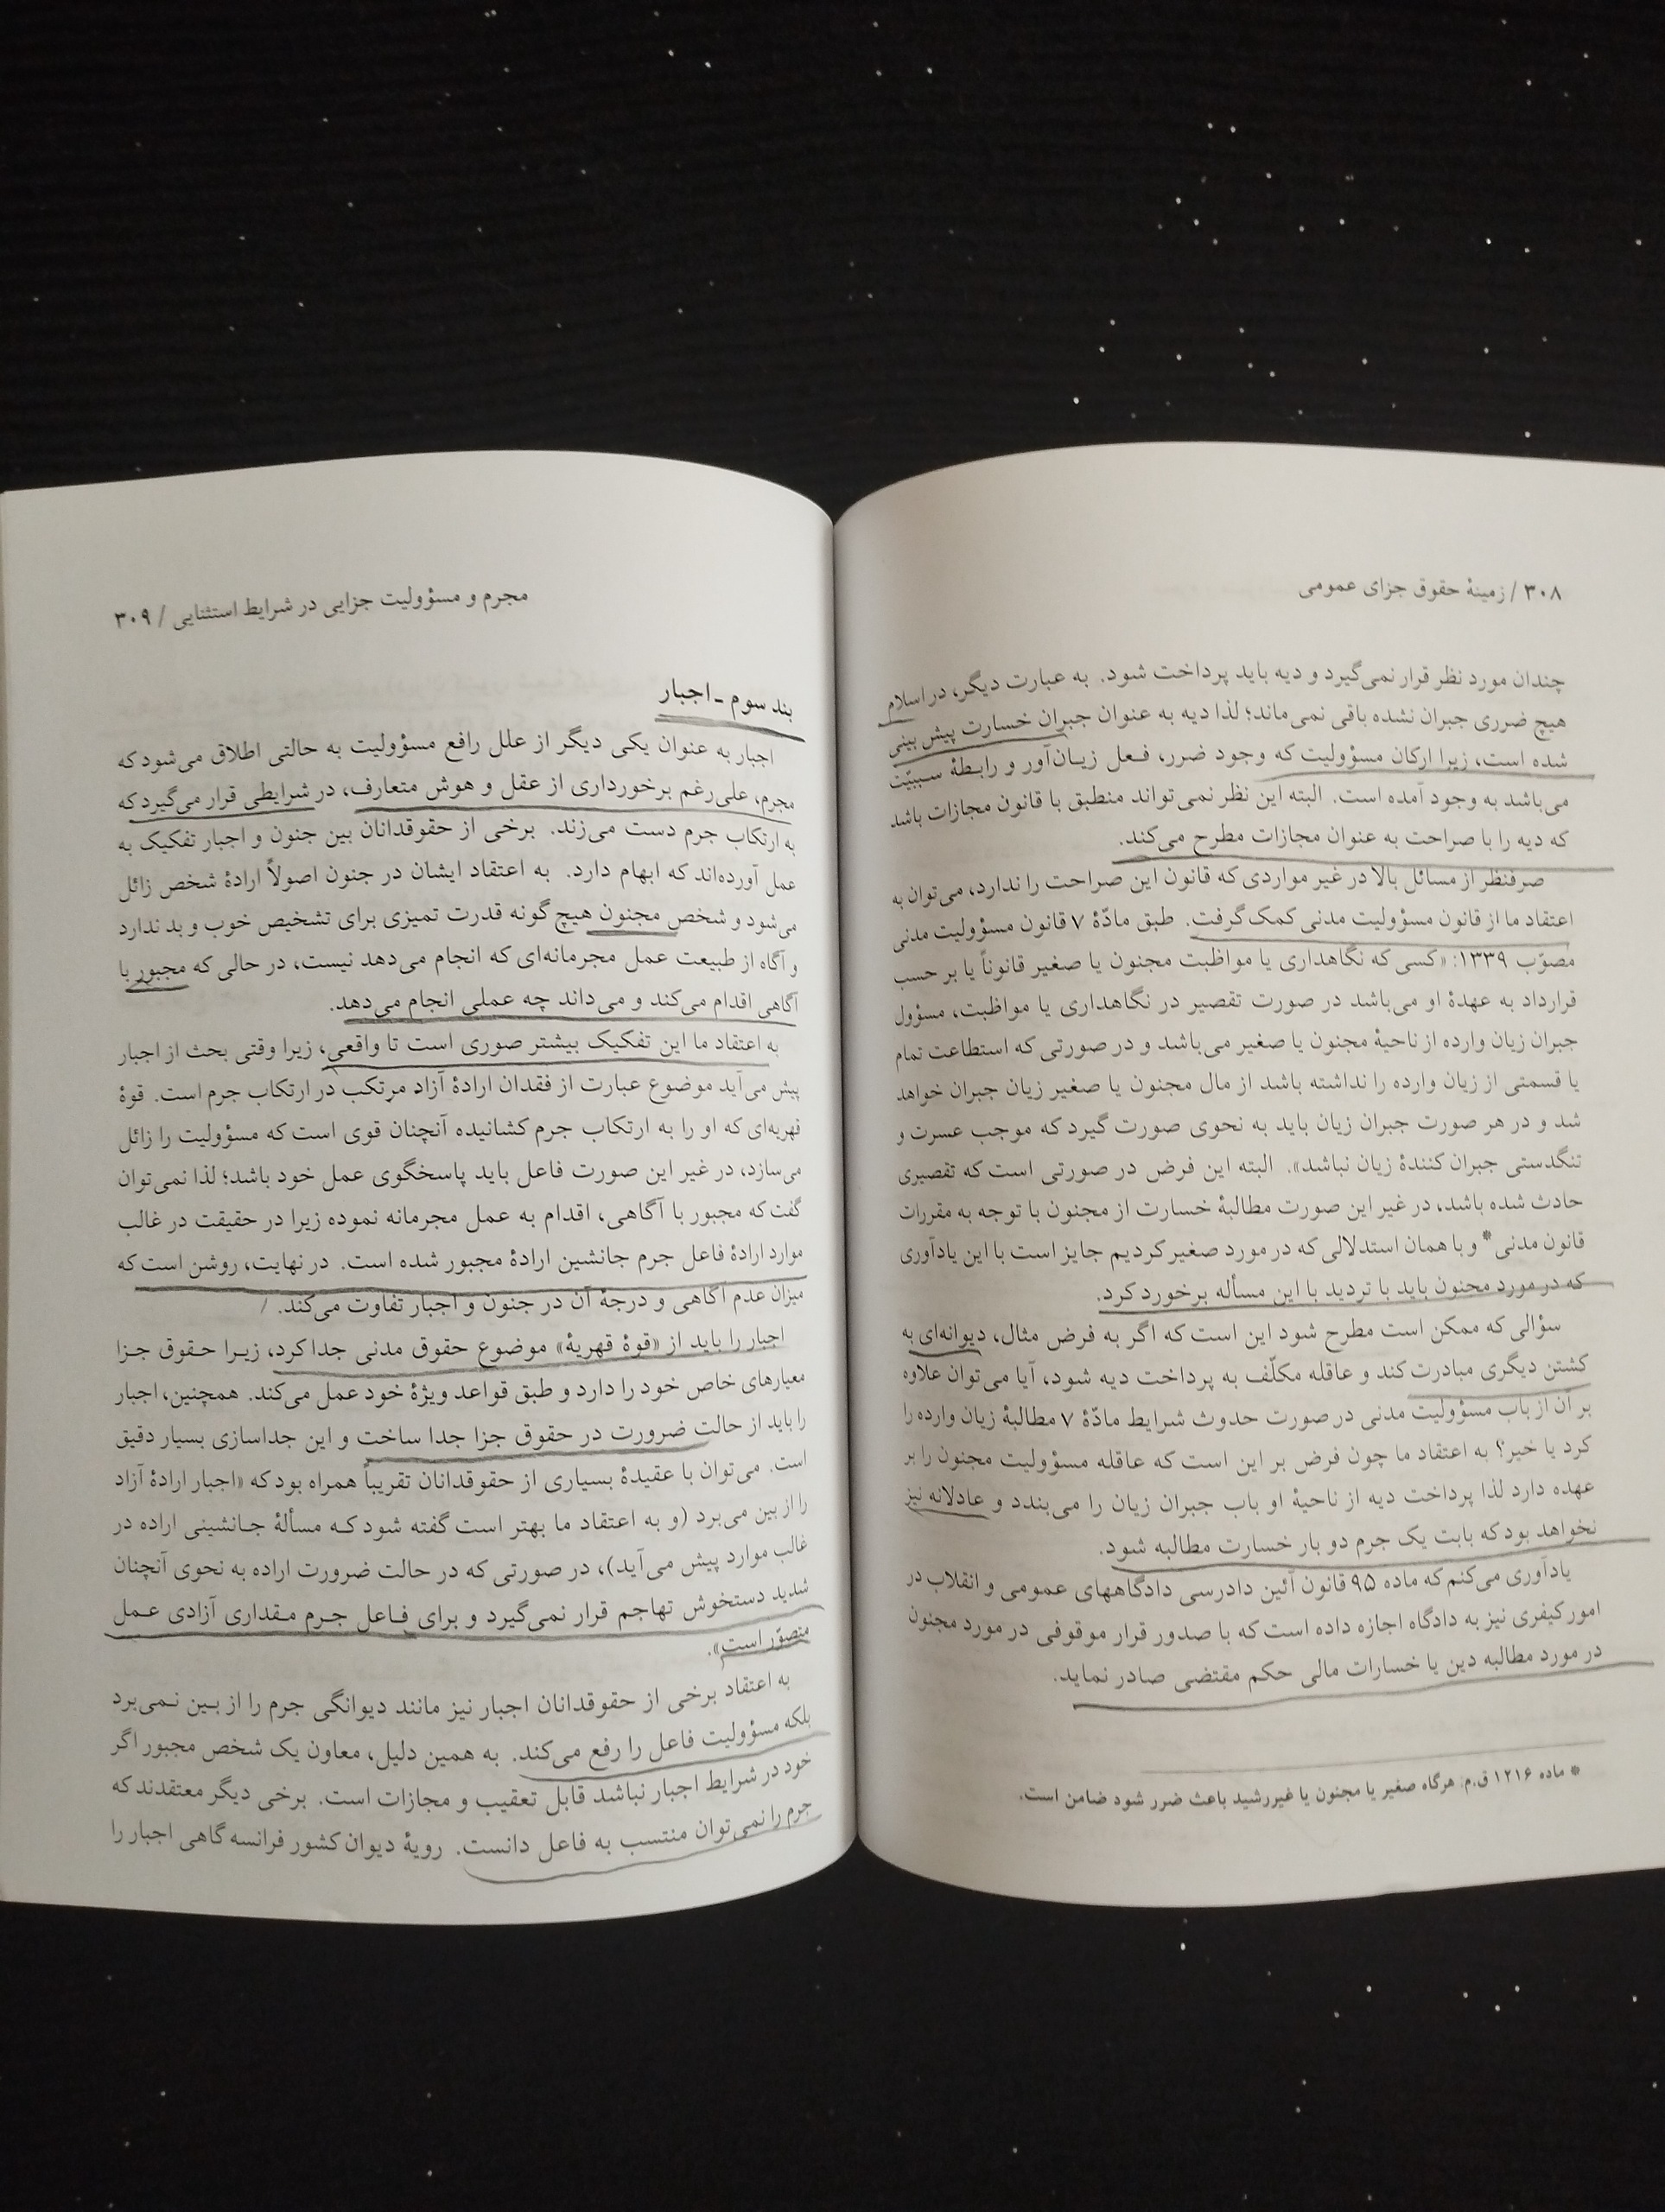 ۳۰۸ / زمینهٔ حقوق جزای عمومی
چندان مورد نظر قرار نمی‌گیرد و دیه باید پرداخت شود. به عبارت دیگر، در اسلام
هیچ ضرری جبران نشده باقی نمی‌ماند؛ لذا دیه به عنوان جبران خسارت پیش بینی
شده است، زیرا ارکان مسؤولیت که وجود ضرر، فعل زیان‌آور و رابطهٔ سببیّت
می‌باشد به وجود آمده است. البته این نظر نمی‌تواند منطبق با قانون مجازات باشد
که دیه را با صراحت به عنوان مجازات مطرح می‌کند.
صرفنظر از مسائل بالا در غیر مواردی که قانون این صراحت را ندارد، می‌توان به
اعتقاد ما از قانون مسؤولیت مدنی کمک گرفت. طبق مادّهٔ ۷ قانون مسؤولیت مدنی
مصوّب ۱۳۳۹: «کسی که نگاهداری یا مواظبت مجنون یا صغیر قانوناً یا بر حسب
قرارداد به عهدهٔ او می‌باشد در صورت تقصیر در نگاهداری یا مواظبت، مسؤول
جبران زیان وارده از ناحیهٔ مجنون یا صغیر می‌باشد و در صورتی که استطاعت تمام
یا قسمتی از زیان وارده را نداشته باشد از مال مجنون یا صغیر زیان جبران خواهد
شد و در هر صورت جبران زیان باید به نحوی صورت گیرد که موجب عسرت و
تنگدستی جبران کنندهٔ زیان نباشد». البته این فرض در صورتی است که تقصیری
حادث شده باشد، در غیر این صورت مطالبهٔ خسارت از مجنون با توجه به مقررات
قانون مدنی* و با همان استدلالی که در مورد صغیر کردیم جایز است با این یادآوری
که در مورد مجنون باید با تردید با این مسأله برخورد کرد.
سؤالی که ممکن است مطرح شود این است که اگر به فرض مثال، دیوانه‌ای به
کشتن دیگری مبادرت کند و عاقله مکلّف به پرداخت دیه شود، آیا می‌توان علاوه
بر آن از باب مسؤولیت مدنی در صورت حدوث شرایط مادّهٔ ۷ مطالبهٔ زیان وارده را
کرد یا خیر؟ به اعتقاد ما چون فرض بر این است که عاقله مسؤولیت مجنون را بر
عهده دارد لذا پرداخت دیه از ناحیهٔ او باب جبران زیان را می‌بندد و عادلانه نیز
نخواهد بود که بابت یک جرم دو بار خسارت مطالبه شود.
یادآوری می‌کنم که ماده ۹۵ قانون آئین دادرسی دادگاههای عمومی و انقلاب در
امور کیفری نیز به دادگاه اجازه داده است که با صدور قرار موقوفی در مورد مجنون
در مورد مطالبه دین یا خسارات مالی حکم مقتضی صادر نماید.
* ماده ۱۲۱۶ ق.م: هرگاه صغیر یا مجنون یا غیررشید باعث ضرر شود ضامن است.
مجرم و مسؤولیت جزایی در شرایط استثنایی / ۳۰۹
بند سوم ـ اجبار
اجبار به عنوان یکی دیگر از علل رافع مسؤولیت به حالتی اطلاق می‌شود که
مجرم، علی‌رغم برخورداری از عقل و هوش متعارف، در شرایطی قرار می‌گیرد که
به ارتکاب جرم دست می‌زند. برخی از حقوقدانان بین جنون و اجبار تفکیک به
عمل آورده‌اند که ابهام دارد. به اعتقاد ایشان در جنون اصولاً ارادهٔ شخص زائل
می‌شود و شخص مجنون هیچ گونه قدرت تمیزی برای تشخیص خوب و بد ندارد
و آگاه از طبیعت عمل مجرمانه‌ای که انجام می‌دهد نیست، در حالی که مجبور با
آگاهی اقدام می‌کند و می‌داند چه عملی انجام می‌دهد.
به اعتقاد ما این تفکیک بیشتر صوری است تا واقعی، زیرا وقتی بحث از اجبار
پیش می‌آید موضوع عبارت از فقدان ارادهٔ آزاد مرتکب در ارتکاب جرم است. قوهٔ
قهریه‌ای که او را به ارتکاب جرم کشانیده آنچنان قوی است که مسؤولیت را زائل
می‌سازد، در غیر این صورت فاعل باید پاسخگوی عمل خود باشد؛ لذا نمی‌توان
گفت که مجبور با آگاهی، اقدام به عمل مجرمانه نموده زیرا در حقیقت در غالب
موارد ارادهٔ فاعل جرم جانشین ارادهٔ مجبور شده است. در نهایت، روشن است که
میزان عدم آگاهی و درجهٔ آن در جنون و اجبار تفاوت می‌کند.
اجبار را باید از «قوهٔ قهریهٔ» موضوع حقوق مدنی جدا کرد، زیرا حقوق جزا
معیارهای خاص خود را دارد و طبق قواعد ویژهٔ خود عمل می‌کند. همچنین، اجبار
را باید از حالت ضرورت در حقوق جزا جدا ساخت و این جداسازی بسیار دقیق
است. می‌توان با عقیدهٔ بسیاری از حقوقدانان تقریباً همراه بود که «اجبار ارادهٔ آزاد
را از بین می‌برد (و به اعتقاد ما بهتر است گفته شود که مسألهٔ جانشینی اراده در
غالب موارد پیش می‌آید)، در صورتی که در حالت ضرورت اراده به نحوی آنچنان
شدید دستخوش تهاجم قرار نمی‌گیرد و برای فاعل جرم مقداری آزادی عمل
متصوّر است».
به اعتقاد برخی از حقوقدانان اجبار نیز مانند دیوانگی جرم را از بین نمی‌برد
بلکه مسؤولیت فاعل را رفع می‌کند. به همین دلیل، معاون یک شخص مجبور اگر
خود در شرایط اجبار نباشد قابل تعقیب و مجازات است. برخی دیگر معتقدند که
جرم را نمی‌توان منتسب به فاعل دانست. رویهٔ دیوان کشور فرانسه گاهی اجبار را